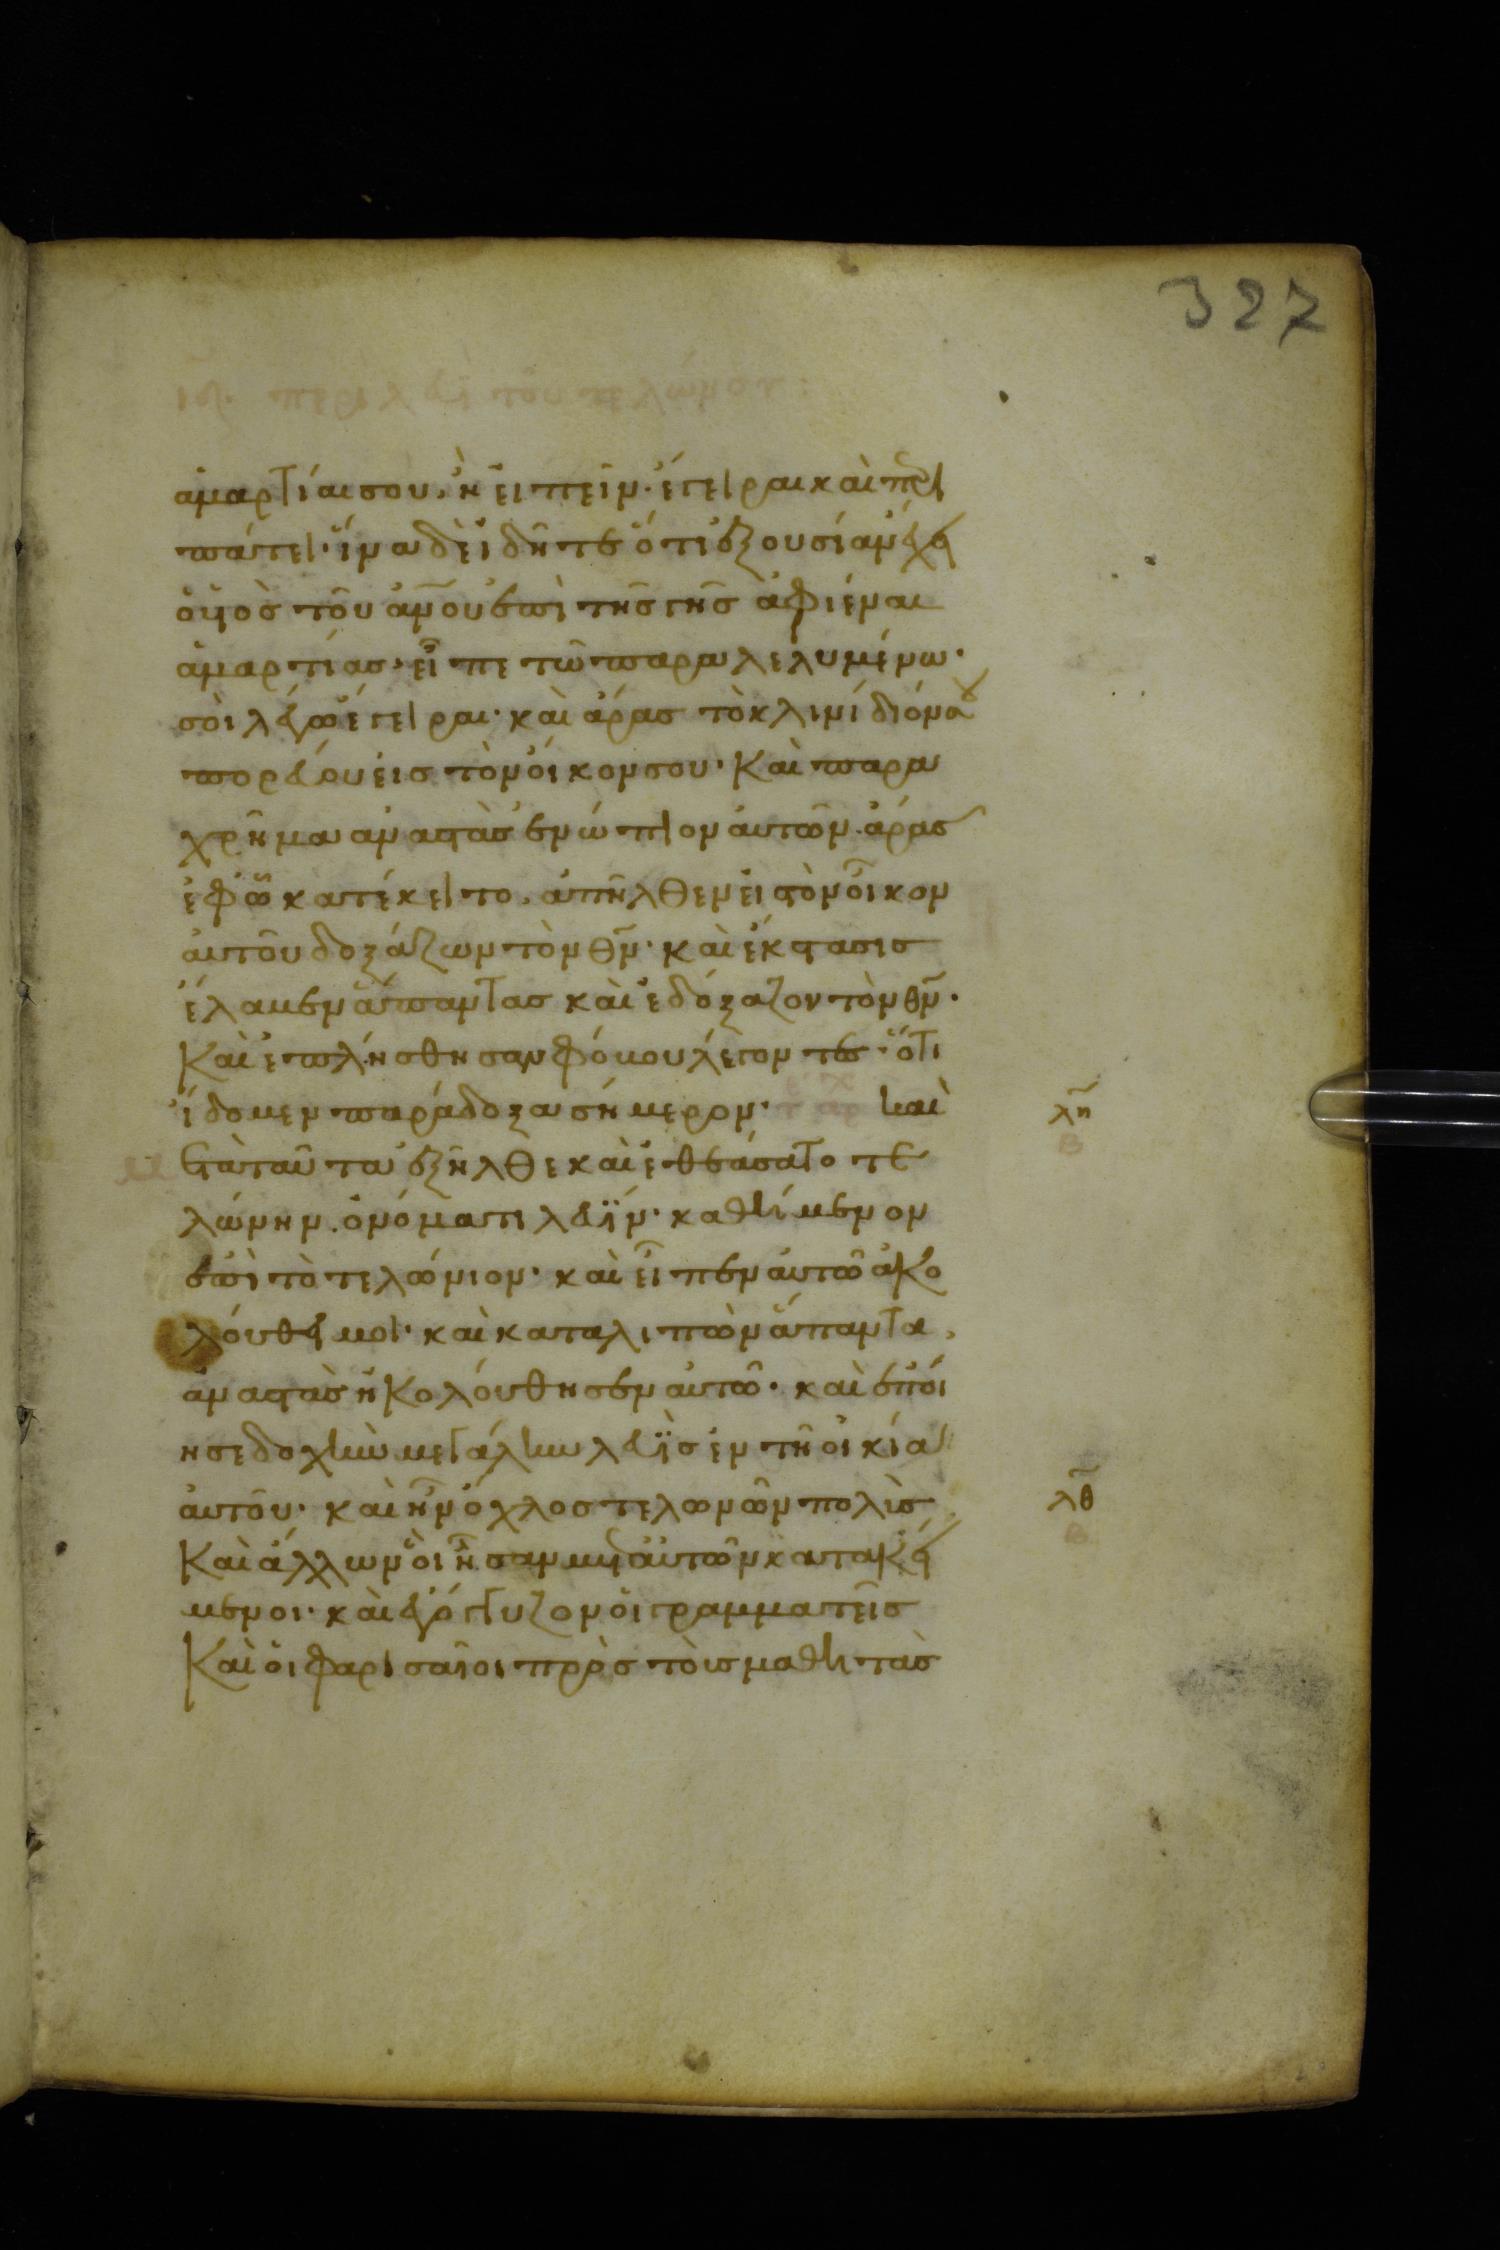 327
ἁμαρτίαι σου, ἢ εἰπεῖν· ἔγειραι καὶ περι
πάτει· ἵνα δὲ εἰδῆτε ὅτι ἐξουσίαν ἔχει
ὁ υἱὸς τοῦ ἀν̅ου ἐπὶ τῆς γῆς ἀφιέναι
ἁμαρτίας· εἶπε τῶ παραλελυμένω·
σοὶ λέγω ἔγειραι· καὶ ἄρας τὸ κλινίδιόν σου
πορεύου εἰς τὸν οἶκον σου· Καὶ παρα
χρῆμα ἀναστὰς ἐνώπιον αὐτῶν. ἄρας
ἐφ ὧ κατέκειτο, ἀπῆλθεν εἰς τὸν οἶκον
αὐτοῦ δοξάζων τὸν θν̅· καὶ ἔκστασις
ἔλαβεν ἅπαντας καὶ ἐδόξαζον τὸν θν̅·
Καὶ ἐπλήσθησαν φόβου λέγοντες· ὅτι
ἴδομεν παράδοξα σήμερον· Και
λη
μετὰ ταῦτα ἐξῆλθε καὶ ἐθεάσατο τε
λώνην. ὀνόματι λευΐν· καθήμενον
ἐπὶ τὸ τελώνιον· καὶ εἶπεν αὐτῶ ἀκο
λούθει μοι· καὶ καταλιπὼν ἅπαντα,
ἀναστὰς ἠκολούθησεν αὐτῶ· καὶ ἐποί
ησε δοχὴν μεγάλην λευῒς ἐν τῆ οἰκία
αὐτοῦ· καὶ ἦν ὄχλος τελωνῶν πολὺς
λθ
Καὶ ἄλλων οἳ ἦσαν μετ αὐτῶν κατακεί
μενοι· καὶ ἐγόγγυζον οἱ γραμματεῖς
Καὶ οἱ φαρισαῖοι πρὸς τοὺς μαθητὰς